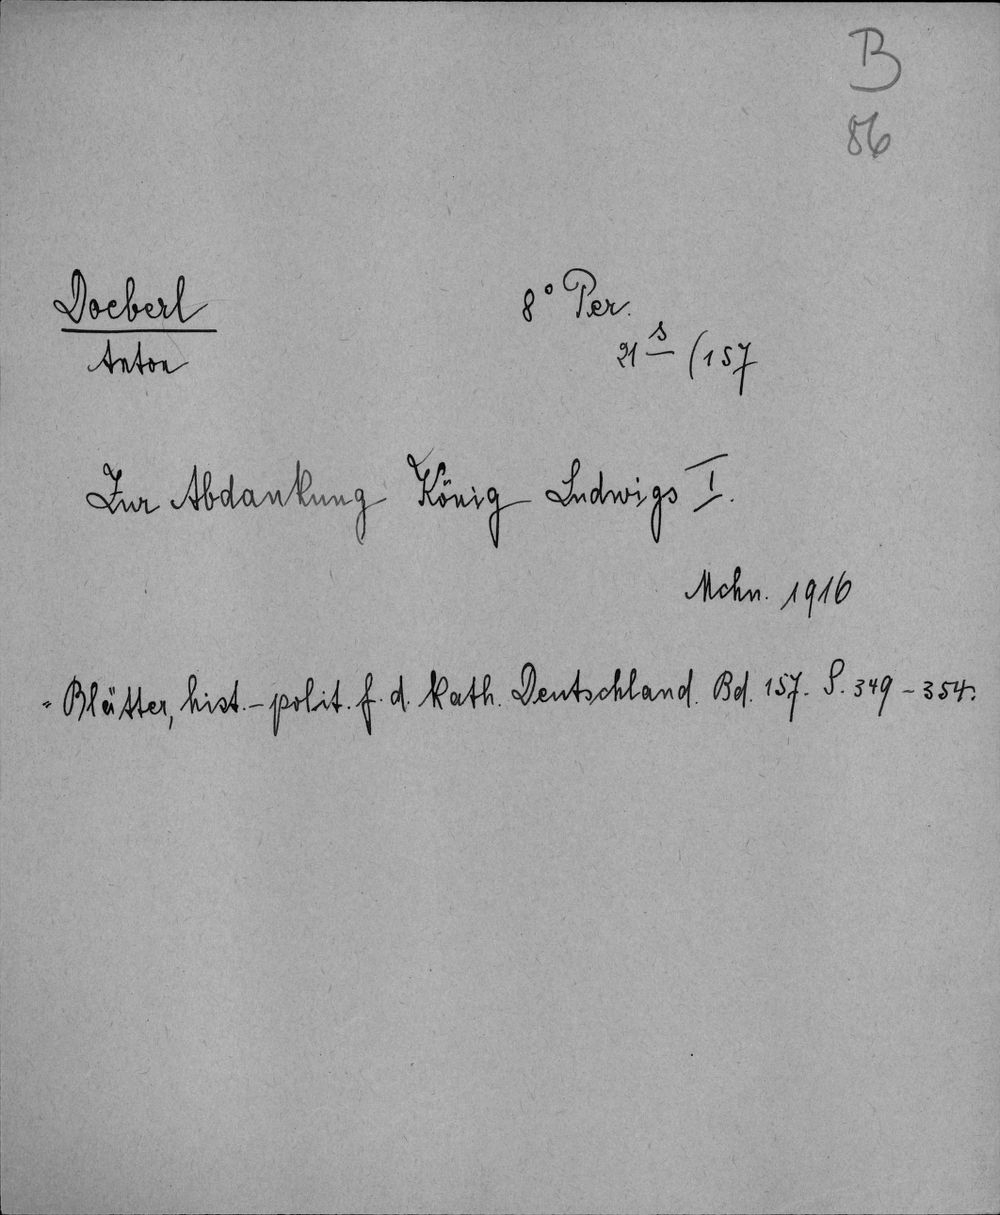 B
86
Doeberl 8° Per.
Anton 21 s (157
Zur Abdankung König Ludwigs I.
Mchn. 1916
= Blätter, hist.-polit. f. d. kath. Deutschland. Bd. 157. S. 349-354.